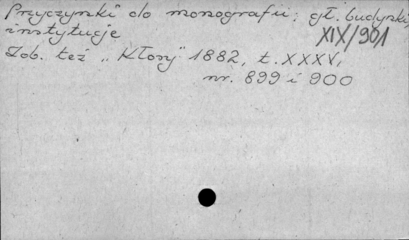 Przyczynki do monografii; gł. budynki,
XIX/901
instytucje
Zob. też "Kłosy" 1882, t. XXXV,
nr. 899 i 900